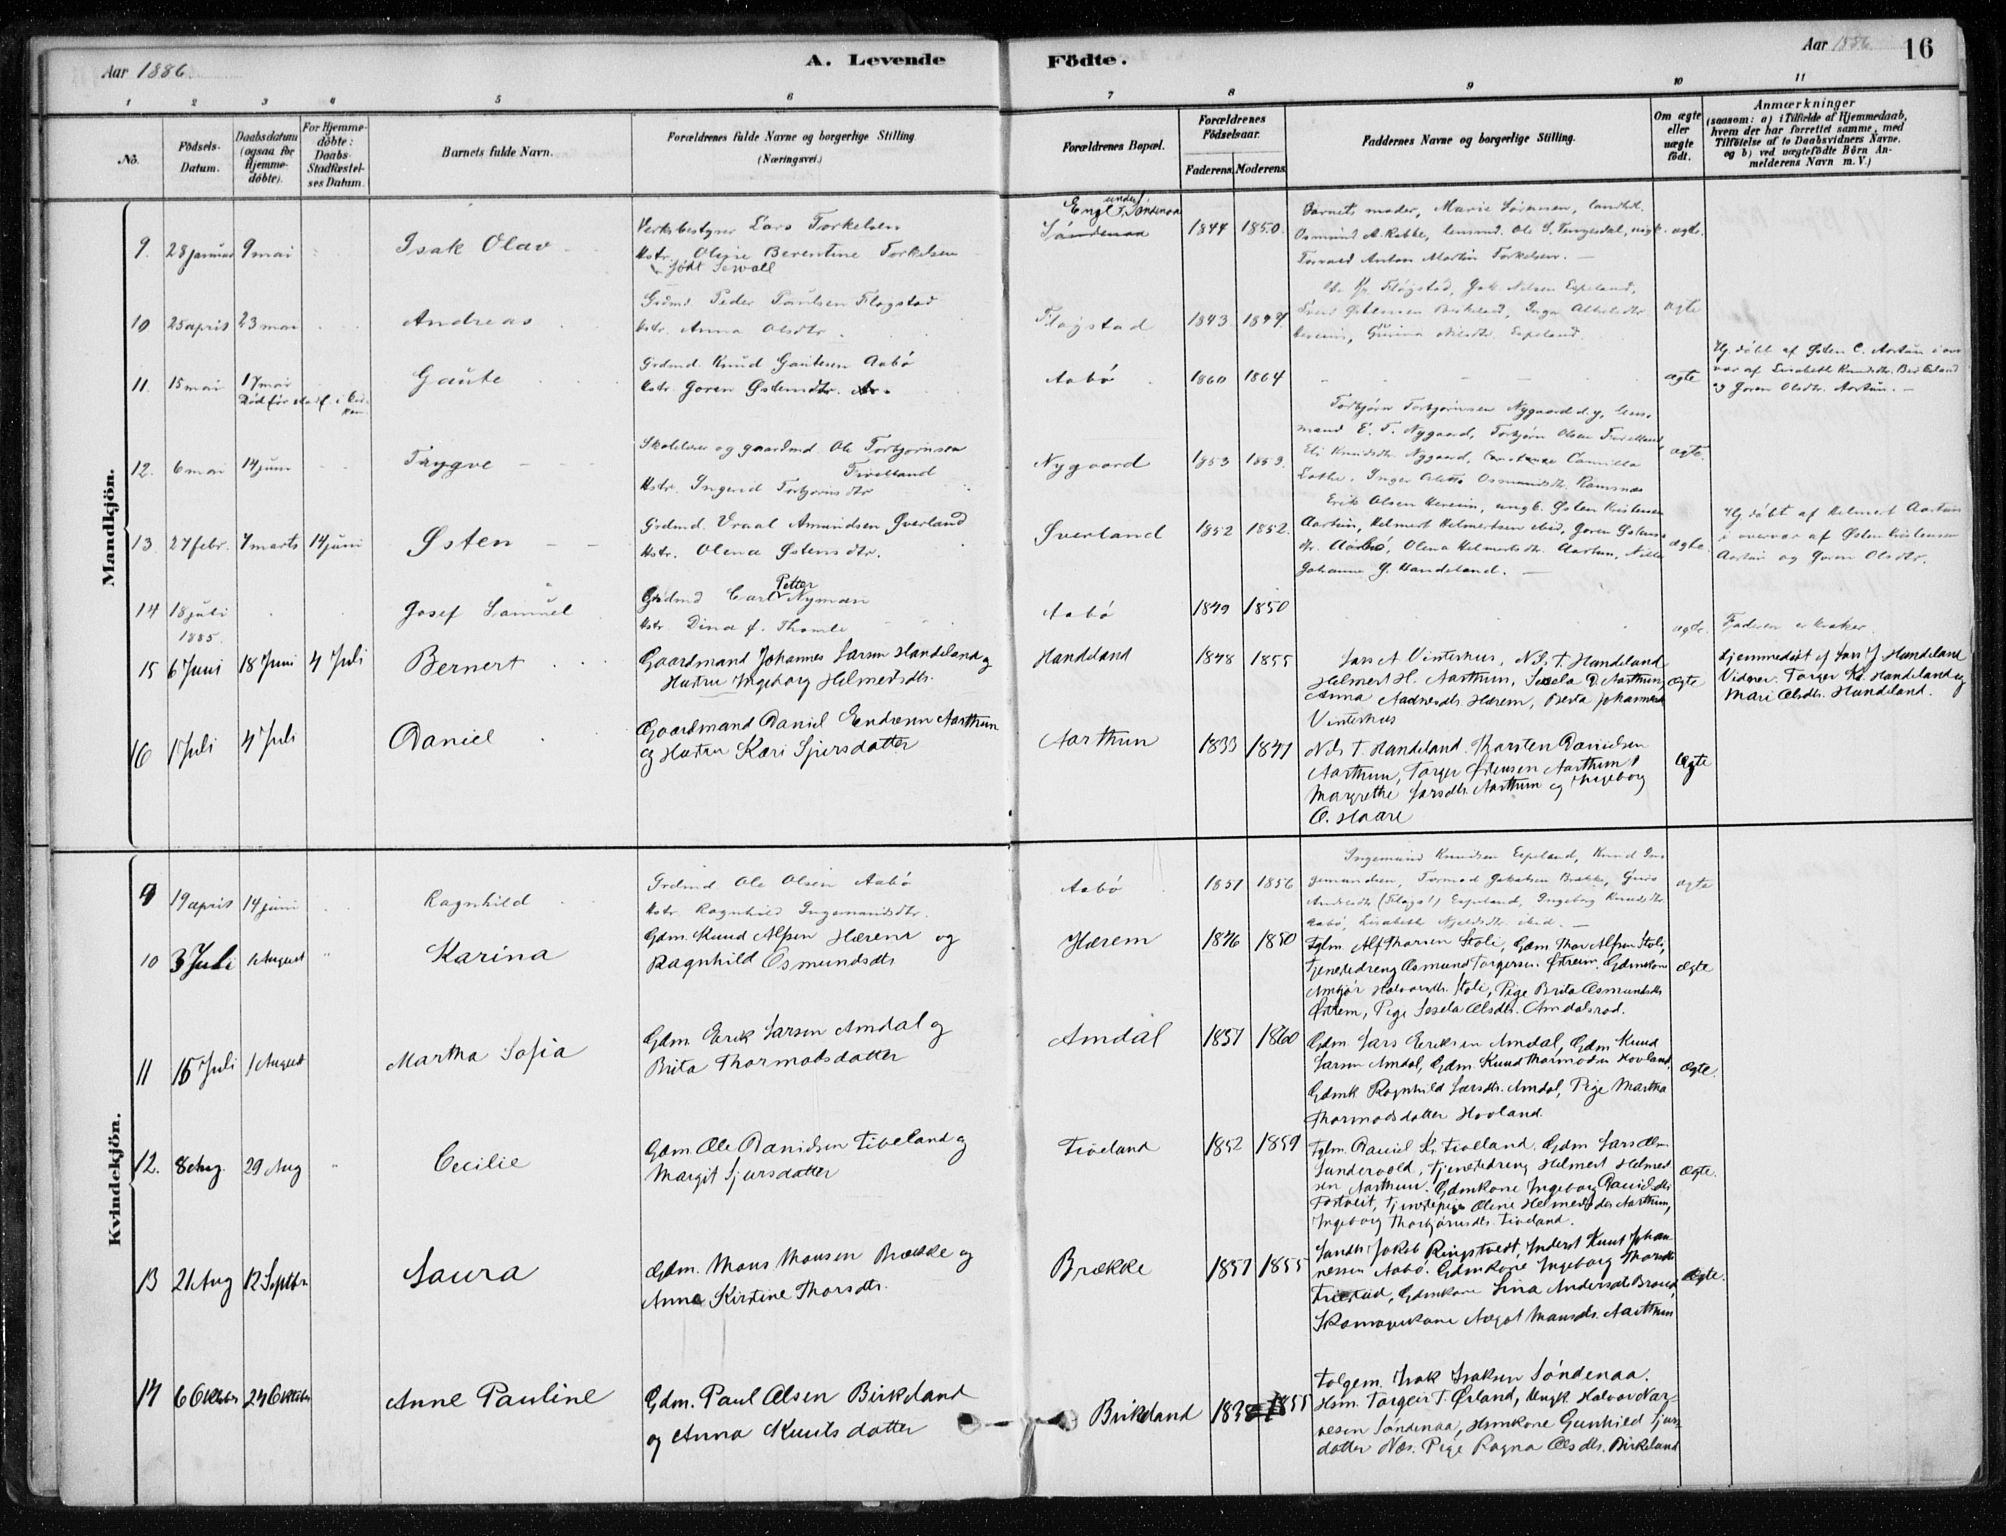 Aar 1886.
A. Levende
Födte.
Aar 1886
16
1 2 3 4 5 6 7 8 9 10 11
No.
Födsels-
Datum.
Daabsdatum
(ogsaa for
Hjemme-
döbte).
For Hjemme-
döbte:
Daabs-
Stadfæstel-
ses Datum.
Barnets fulde Navn.
Forældrenes fulde Navne og borgerlige Stilling.
(Næringsvei.)
Forældrenes Bopæl.
Forældrenes
Födselsaar.
Faderens. Moderens.
Faddernes Navne og borgerlige Stilling.
Om ægte
eller
uægte
födt.
Anmærkninger
(saasom: a) i Tilfælde af Hjemmedaab,
hvem der har forrettet samme, med
Tilföielse af to Daabsvidners Navne,
og b) ved uægtefödte Börn An-
melderens Navn m. V.)
Mandkjön.
9. 28 januar 9 mai
Isak Olav
Verksbestyrer Lars Torkelsen
Hstr. Oline Berentine Torkelsen
født Sewall
Engl under Søndenaa
Søndenaa
1844 1850
Barnets moder, Marie Sørensen, landhdl.
Osmund A. Rabbe, lensmd. Ole S. Tengesdal, ungk.
Torvald Anton Martin Torkelsen.
ægte.
10 25 april 23 mai
Andreas
Grdmd Peder Paulsen Fløgstad
Hstr. Anna Olsdtr.
Fløgstad
1843 1847
Fløgstad, Jak. Nilsen Espeland,
Gurina Nilsdtr. Espeland
ægte
11. 15 mai 17 mai
Død før stadf. i kir-
ken
Gaute
Grdmd. Knud Gautesen Aabø
Hstr. Goren Østensdtr.
Aabø
1860 1864
- - -
ægte
Hj. døbt af Østen C. Aartun i over-
vær af Lisabeth Knudsdtr. Birkeland
og Goren Olsdtr. Aartun. -
12. 6 mai 14 juni
Trygve
Skolelærer og gaardmd Ole Torbjørnsen
Tveitland
Hstr. Ingerid Torbjørnsdtr
Nygaard
1853 1853.
Torbjørn Torbjørnsen Nygaard d.y, lens-
mand E. T. Nygaard, Torbjørn Olsen
Eli Knudsdtr. Nygaard, Constance Camilla
Lothe, Inger Osmundsdtr. Ramsnæs
ægte.
13. 27 febr. 7 marts 14 juni
Østen
Grdmd. Vraal Amundsen Øverland
Hstr. Olena Østensdtr.
Øverland
1852 1852.
Erik Olsen Herem, ungk. Østen Kristensen
Aartun, Helmert Helmertsen ibid, Goren Østens-
dtr. Aabø, Olena Helmertsdtr. Aartun, Nille
Johanne G. Handeland. -
ægte
Hj. døbt af Helmert Aartun
i overvær af Østen Kristensen
Aartun og Goren Olsdtr.
14 18 juli
1885.
Josef Samuel
Grdmd Carl Petter Nyman
Hstr. Dina f. Thomle
Aabø
1849 1850
ægte.
Faderen er kvæker.
15 6 Juni 18 Juni 4 Juli
Bernert
Gaardmand Johannes Larsen Handeland og
Hustru Ingeborg Helmersdtr.
Handeland
1848 1855
Lars A Vinterhus, Nils T. Handeland
Helmert H. Aarthun, Sesela D. Aarthun,
Anna Aadnesdtr. Hærem, Berta Johannesd.
Vinterhus
Ægte
Hjemmedøbt af Lars J. Handeland
Vidner. Torger Kl. Handeland og
Mari Olsdtr. Handeland.
16 1 Juli 4 Juli
Daniel
Gaardmand Daniel Endresen Aarthun
og Hustru Kari Sjursdatter
Aarthun
1833 1841
Nils T. Handeland. Karsten Danielsen
Aarthun, Torger Østensen Aarthun
Margrethe Larsdtr. Aarthun og Ingeborg
O. Haare
Ægte
Kvindekjön.
9 19 april 14 juni
Ragnhild
Grdmd Ole Olsen Aabø
Hstr. Ragnhild Ingemundsdtr.
Aabø
1851 1856
Ingemund Knudsen Espeland, Knud In-
gemundsen, Tormod Jakobsen Brekke, Guro
Andersdtr. Espeland, Ingeborg Knudsdtr.
Aabø, Lisabeth ibid. -
ægte
10 3 Juli 1 August "
Karina
Gdm. Knud Alfsen Hærem og
Ragnhild Osmundsdtr.
Hærem
1846 1850
Fglm. Alf Thorsen Stole, Gdm. Thor Alfsen Stole,
Tjenestedreng Osmund Torgersen Østrem. Gdmkone
Amgjør Halvorsdtr. Stole, Pige Brita Osmundsdtr.
Østrem, Pige Sesela Olsdtr. Amdalsrød.
Ægte
11 15 Juli 1 August
Martha Sofia
Gdm. Erik Larsen Amdal og
Brita Thormodsdatter
Amdal
1857 1860
Gdm. Lars Eriksen Amdal, Gdm. Knud
Larsen Amdal, Gdm. Knud Thormodsen Hovland,
Gdmk Ragnhild Larsdtr. Amdal, Pige Martha
Thormodsdatter Hovland.
Ægte.
12. 8 Aug. 29 Aug "
Cecilie
Gdm. Ole Danielsen Tveland og
Margit Sjursdatter
Tveland
1852 1859
Fglm. Daniel K. Tveland. Gdm Lars Olsen
Sundevold, Tjenestedreng Helmert Helmert-
sen Aarthun. Gdmkone Ingeborg Danielsdtr
Fostveit, Tjenestepige Oline Helmersdtr Aarthun,
Ingeborg Thorbjørnsdtr. Tveland.
Ægte.
13 21 Aug 12 Septbr
Laura
Gdm. Mons Monsen Brække og
Anne Kirstine Thorsdtr.
Brække
1857 1855
Landh. Jakob Ringstvedt, Inderst Knut Johan-
nessen Aabø. Gdmkone Ingeborg Thorsdtr
Gdmkone Sina Andersdtr
Skomagerkone Aagot Monsdtr. Aarthun
Ægte.
14 6 Oktober 24 Oktober
Anne Pauline
Gdm. Paul Olsen Birkeland
og Anna Knutsdatter
Birkeland
1838 1855
Folgem. Isak Isaksen Søndenaa.
Hsm. Torgeir T. Ørland, Ungk. Halvor Nar-
vesen Søndenaa, Hsmkone Gunhild Sjurs-
datter Næs. Pige Ragna Olsdtr. Birkeland